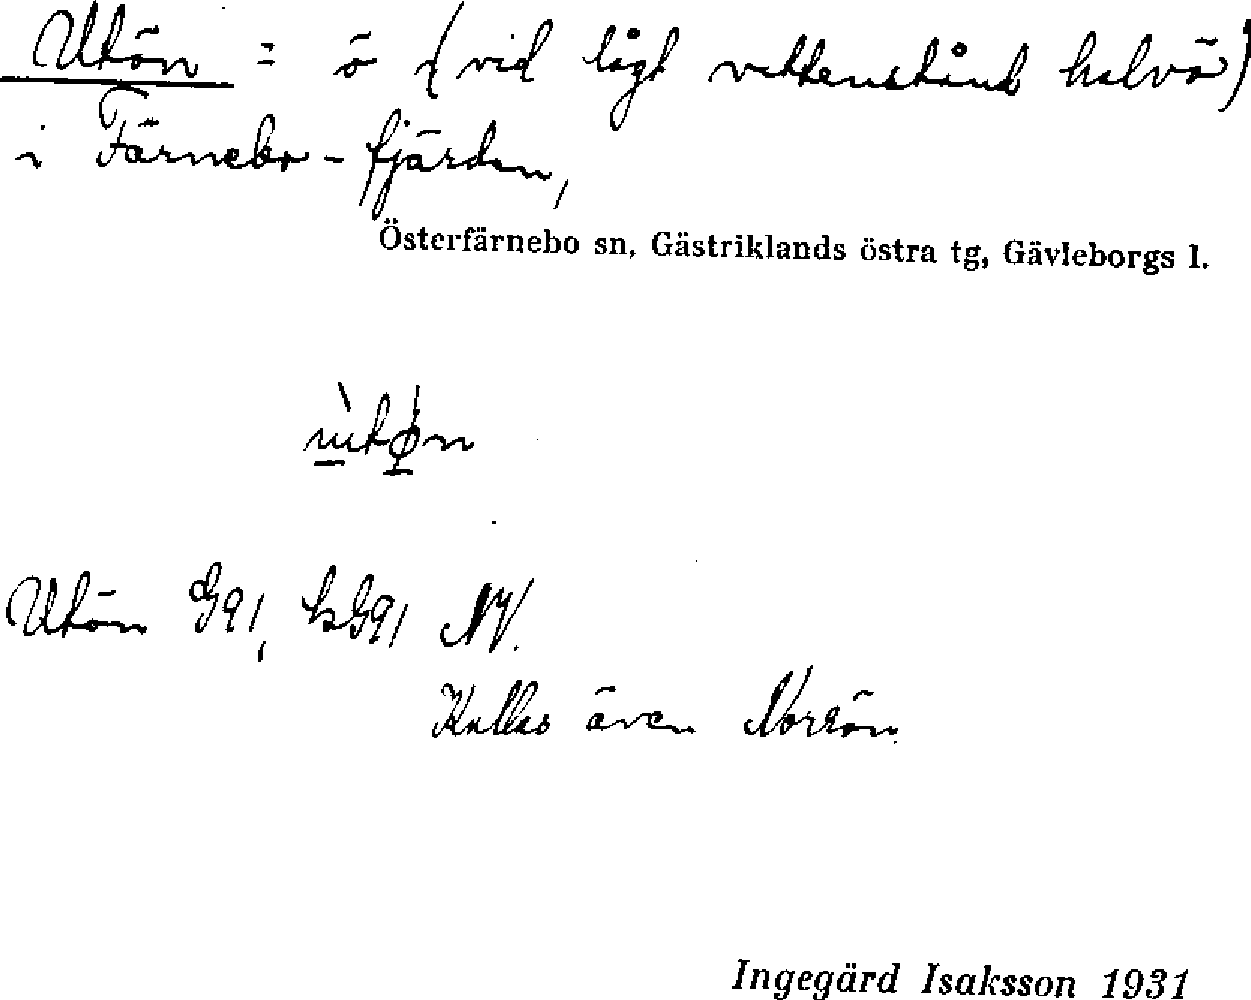 Utön = ö (vid lågt vattenstånd halvö)
i Färnebo-fjärden,
Österfärnebo sn, Gästriklands östra tg, Gävleborgs l.
Utön G91, kG91 NV.
Kallas även Norrön.
Ingegärd Isaksson 1931